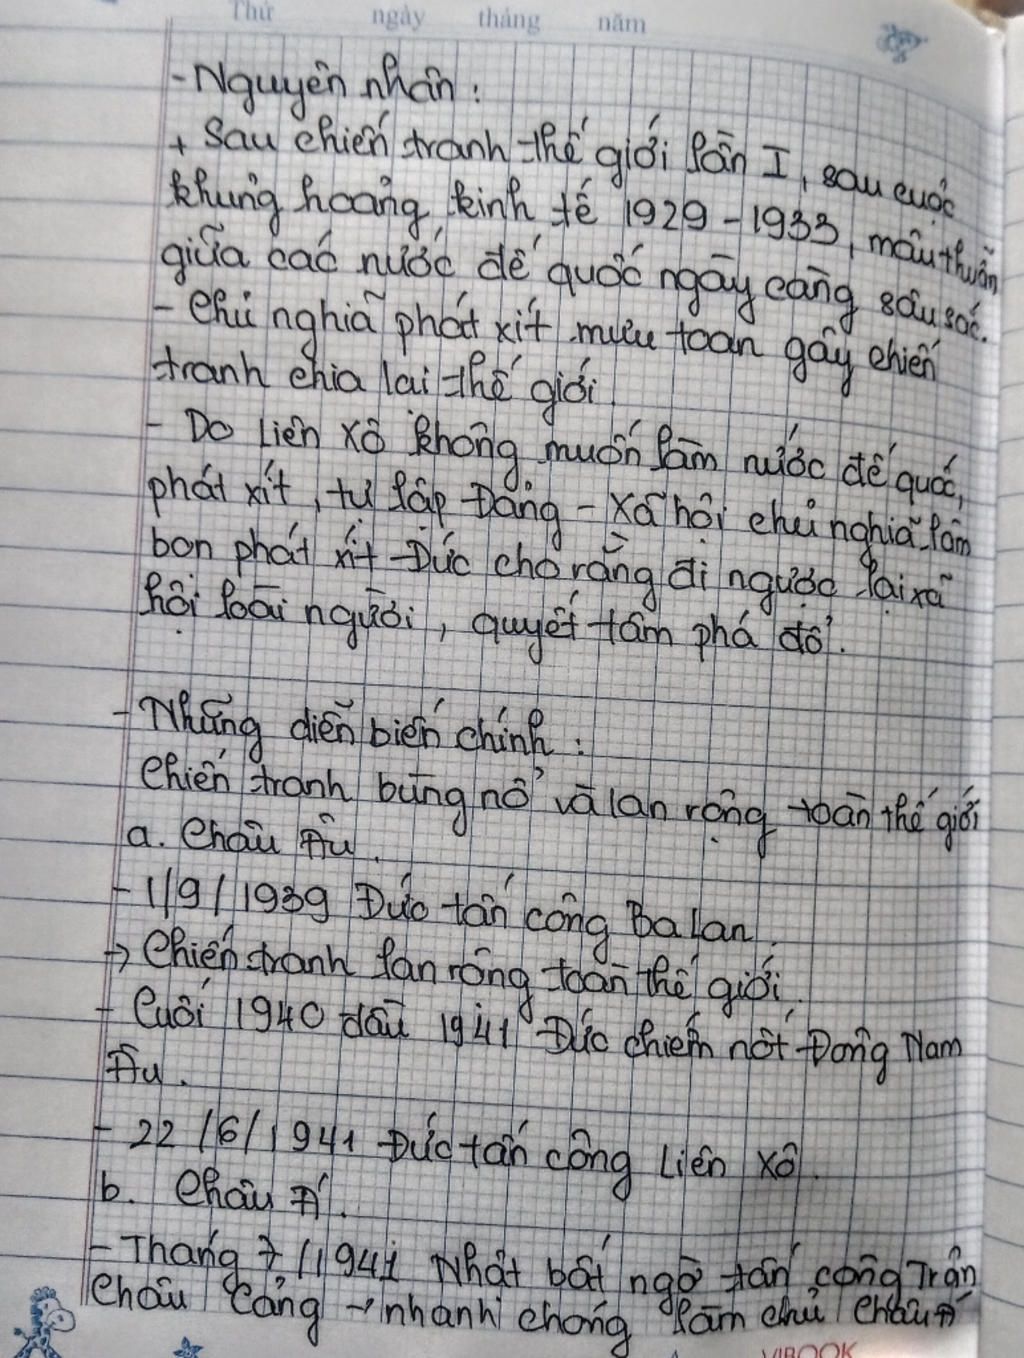 Thứ ngày tháng năm
- Nguyên nhân:
+ Sau chiến tranh thế giới lần I, sau cuộc
khủng hoảng kinh tế 1929 - 1933, mâu thuẫn
giữa các nước đế quốc ngày càng sâu sắc.
- Chủ nghĩa phát xít mưu toan gây chiến
tranh chia lại thế giới.
- Do Liên Xô không muốn làm nước đế quốc,
phát xít, tự lập Đảng - Xã hội chủ nghĩa làm
bọn phát xít Đức cho rằng đi ngược lại xã
hội loài người, quyết tâm phá đổ.
- Những diễn biến chính:
Chiến tranh bùng nổ và lan rộng toàn thế giới
a. Châu Âu.
- 1/9/1939 Đức tấn công Ba lan.
→ Chiến tranh lan rộng toàn thế giới.
- Cuối 1940 đầu 1941 Đức chiếm nốt Đông Nam
Âu.
- 22/6/1941 Đức tấn công Liên Xô.
b. Châu Á.
- Tháng 7/1941 Nhật bất ngờ tấn công Trân
Châu Cảng → nhanh chóng làm chủ Châu Á
VIBOOK